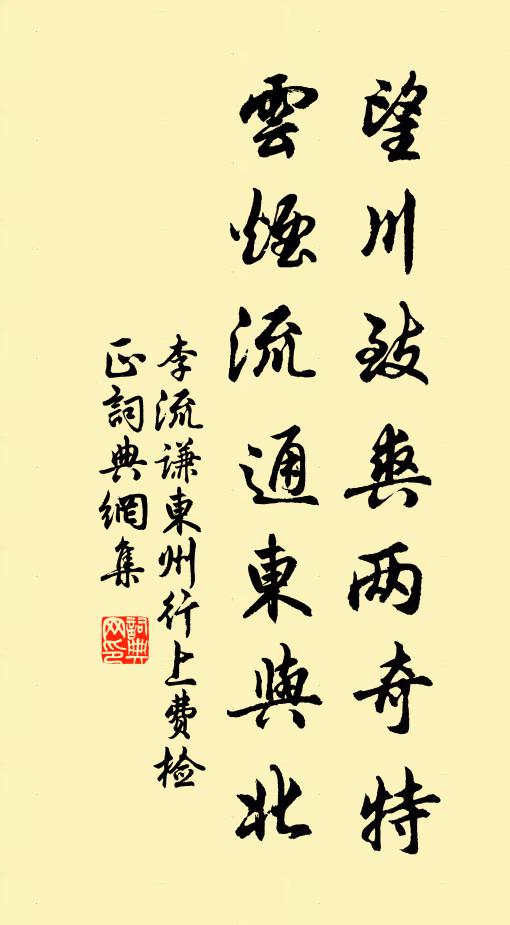 望川致爽两奇特
雲煙流通東與北
李流谦東州行上費檢
正詞典網集
詞典
网印